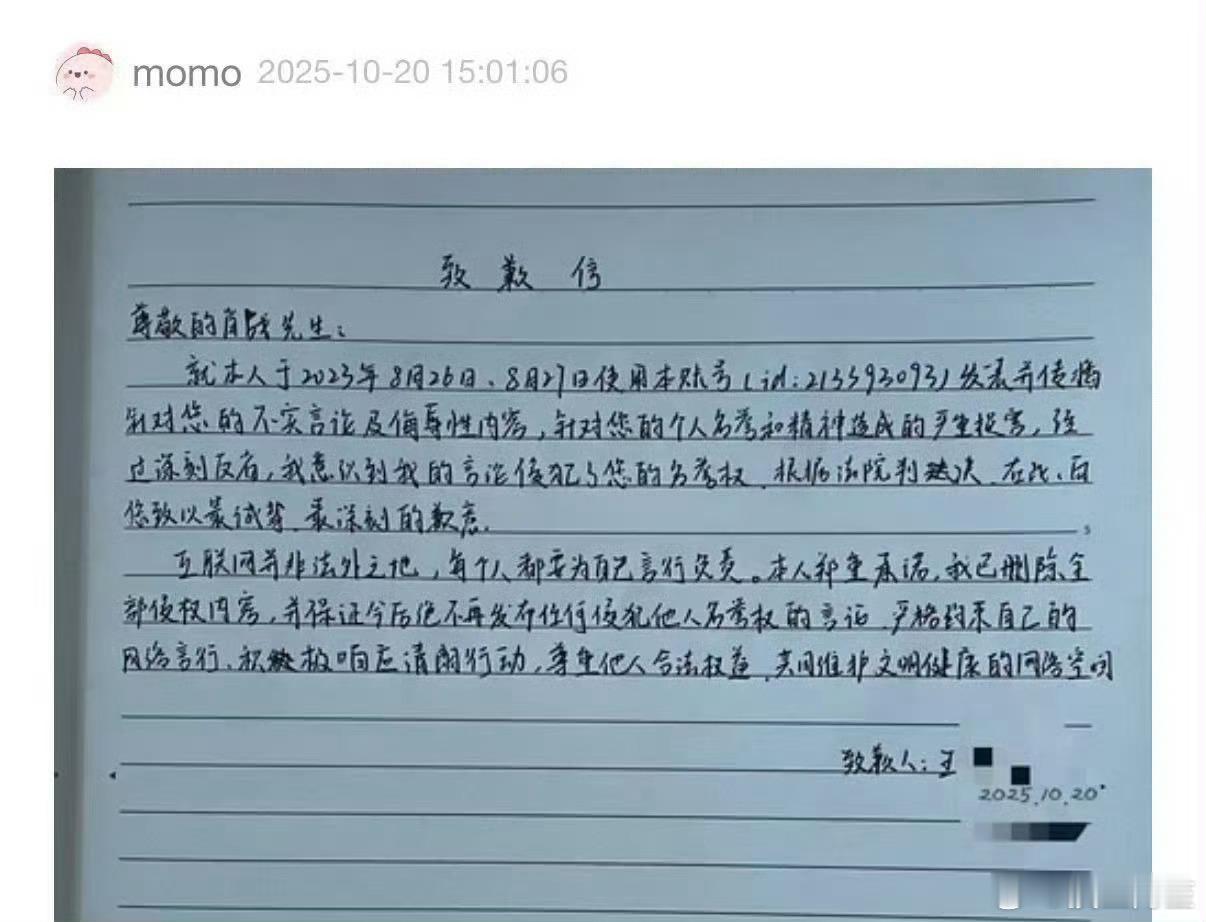 momo 2025-10-20 15:01:06
致歉信
尊敬的肖战先生：
就本人于2023年8月26日、8月27日使用本账号(id:213593093)发表并传播
针对您的不实言论及侮辱性内容，针对您的个人名誉和精神造成的严重损害，经
过深刻反省，我意识到我的言论侵犯了您的名誉权、根据法院判决、在此、向
您致以最诚挚、最深刻的歉意。
互联网并非法外之地，每个人都要为自己言行负责。本人郑重承诺，我已删除全
部侵权内容，并保证今后绝不再发布任何侵犯他人名誉权的言论 严格约束自己的
网络言行、积极响应清朗行动，尊重他人合法权益、共同维护文明健康的网络空间
致歉人：王
2025.10.20.